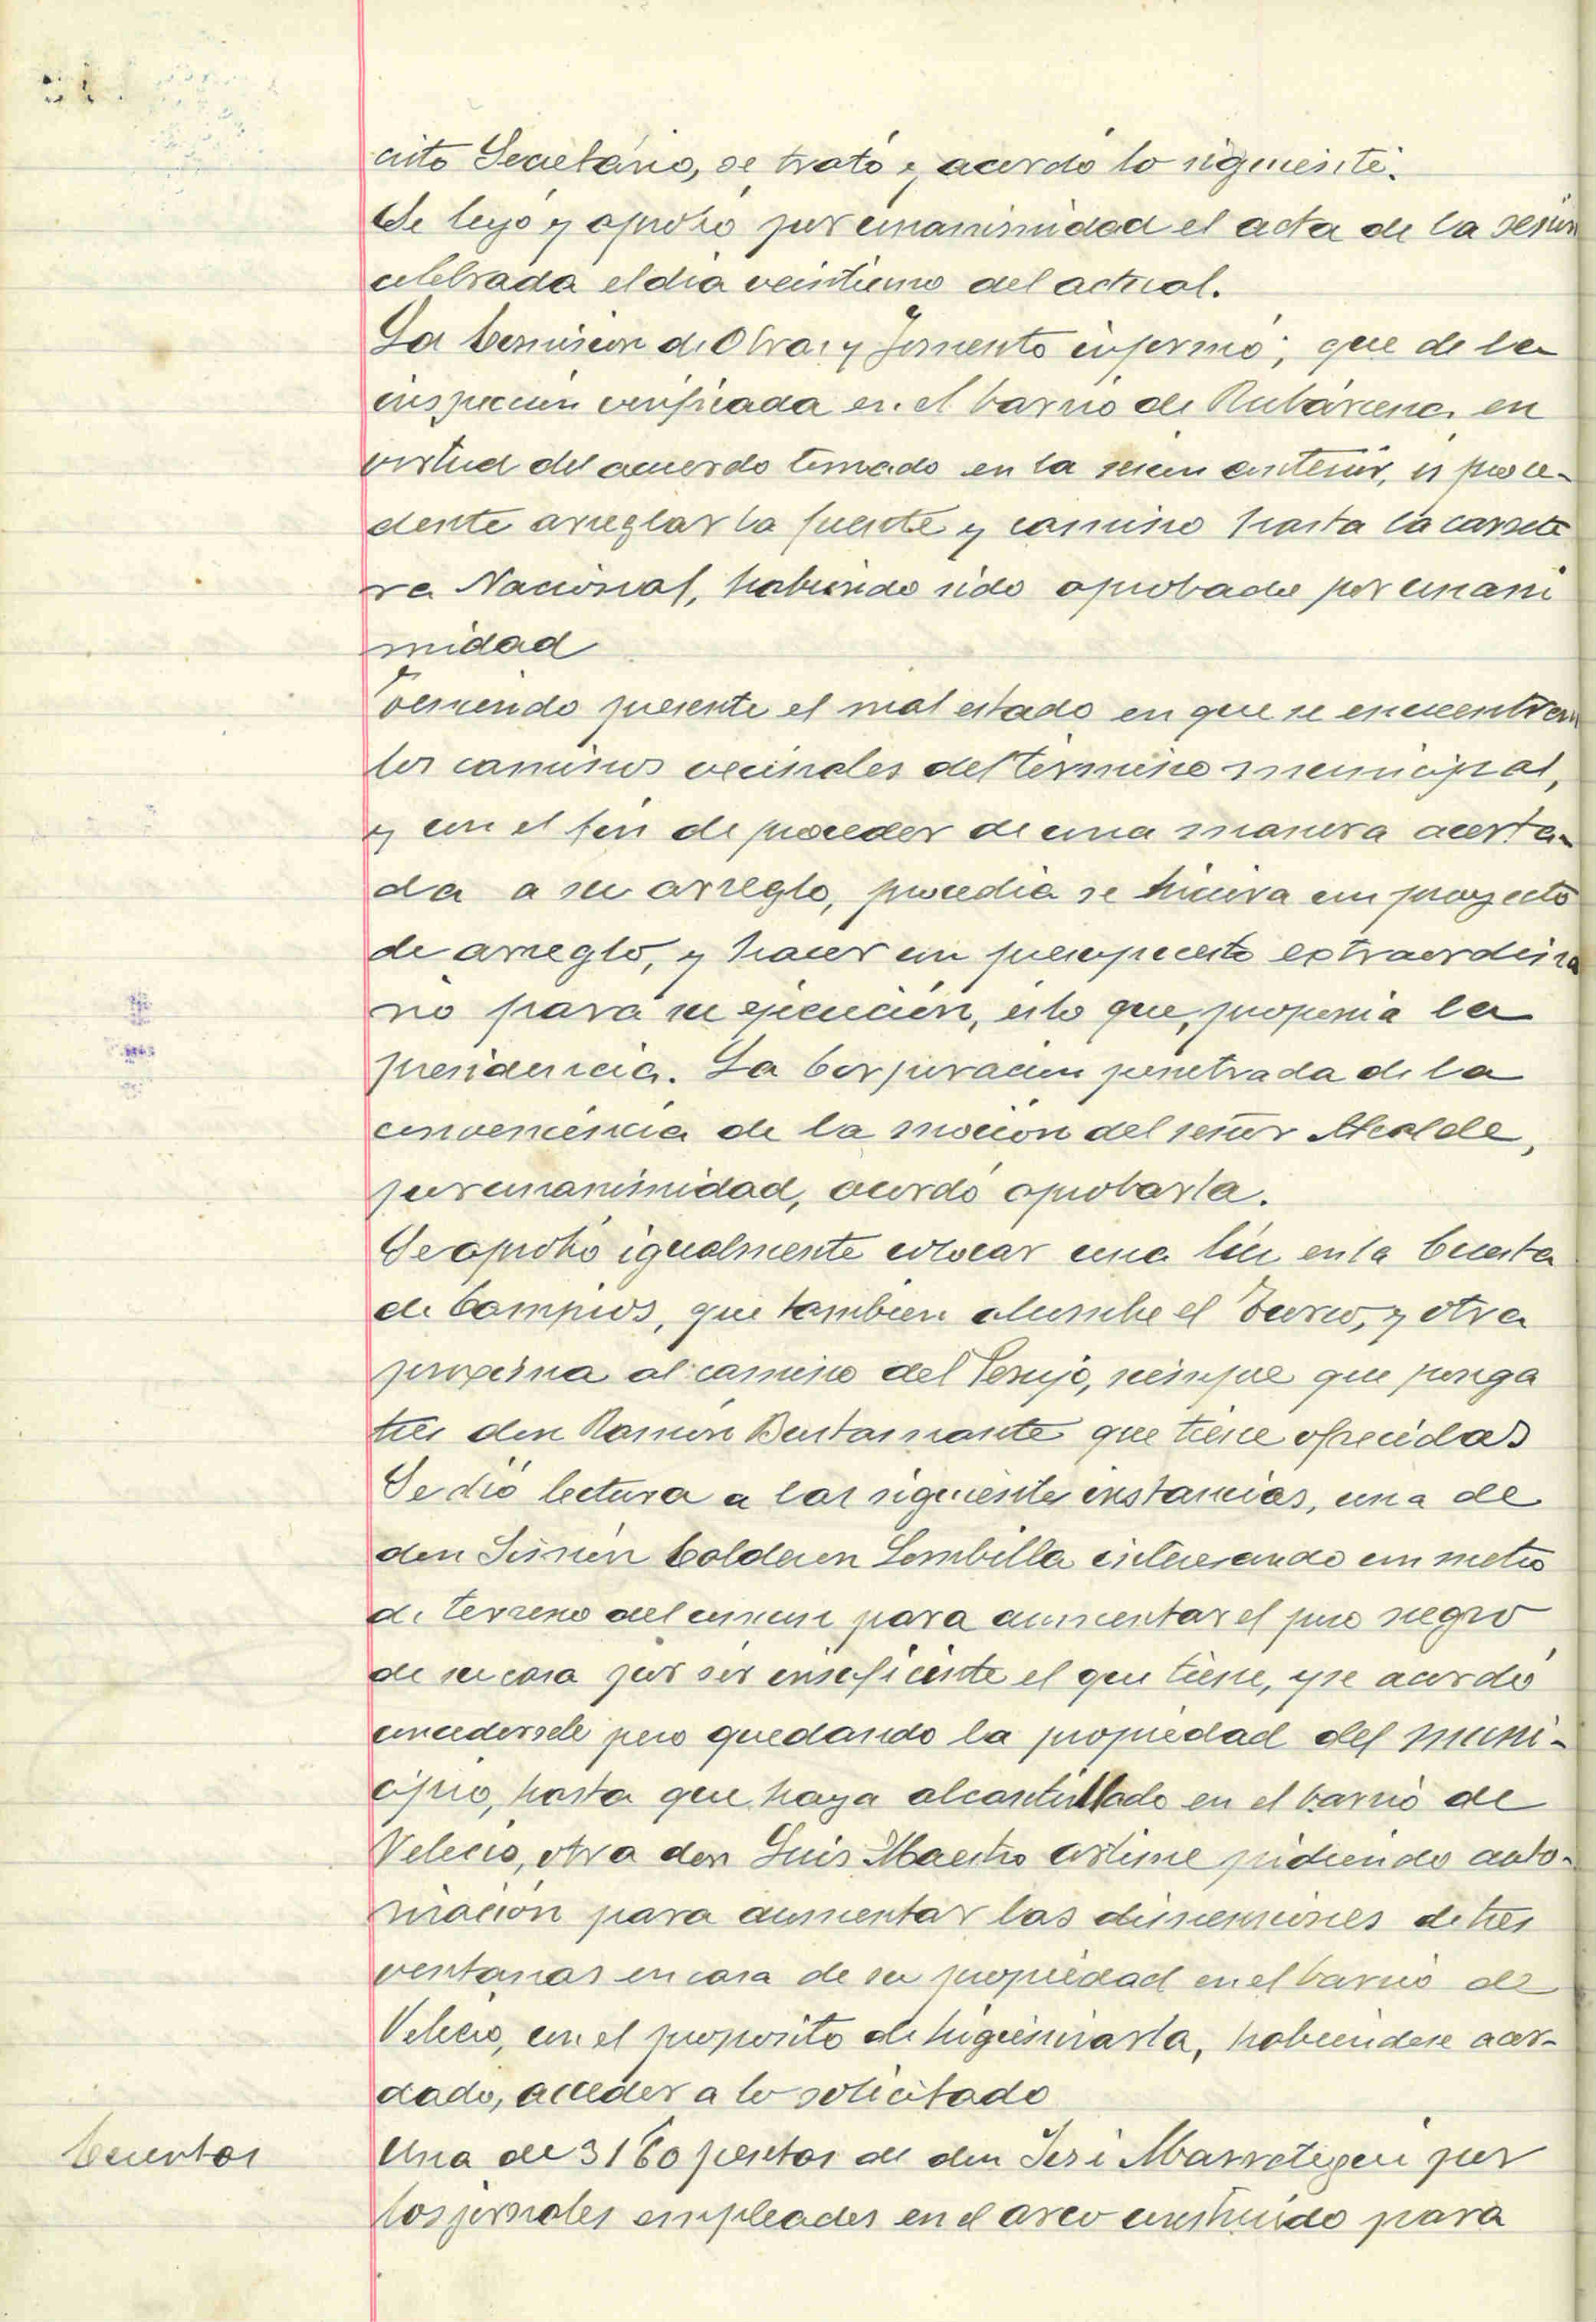 crito Secretario, se trató y acordó lo siguiente.
Se leyó y aprobó por unanimidad el acta de la sesión
celebrada el dia veintiuno del actual.
La Comision de Obras y Fomento informó; que de la
inspeccion verificada en el barrio de Rubárcena en
virtud del acuerdo tomado en la sesion anterior, es proce-
dente arreglar la fuente y camino hasta la carrete
ra Nacional, habiendo sido aprobado por unani
midad
Teniendo presente el mal estado en que se encuentran
los caminos vecinales del termino municipal,
y con el fin de proceder de una manera acerta-
da a su arreglo, procedia se hiciera un proyecto
de arreglo, y hacer un presupuesto extraordina
rio para su ejecución, esto que proponia la
presidencia. La Corporacion penetrada de la
conveniencia de la mocion del señor Alcalde,
por unanimidad, acordó aprobarla.
Se aprobó igualmente colocar una luz en la Cuesta
de Campios, que tambien alumbre el Turco, y otra
proxima al camino del Perujo, siempre que ponga
tres don Ramón Bustamante que tiene ofrecidas
Se dió lectura a las siguientes instancias, una de
don Simón Calderon Lombilla interesando un metro
de terreno del comun para aumentar el pozo negro
de su casa por ser insuficiente el que tiene, y se acordó
concedersele pero quedando la propiedad del muni-
cipio, hasta que haya alcantarillado en el barrio de
Velecio, otra don Luis Maestro Artime pidiendo auto-
rización para aumentar las dimensiones de tres
ventanas en casa de su propiedad en el barrio de
Velecio, con el proposito de higienizarla, habiendose acor-
dado, acceder a lo solicitado
Cuentas Una de 3160 pesetas de don José Marrotegui por
los jornales empleados en el arco construido para